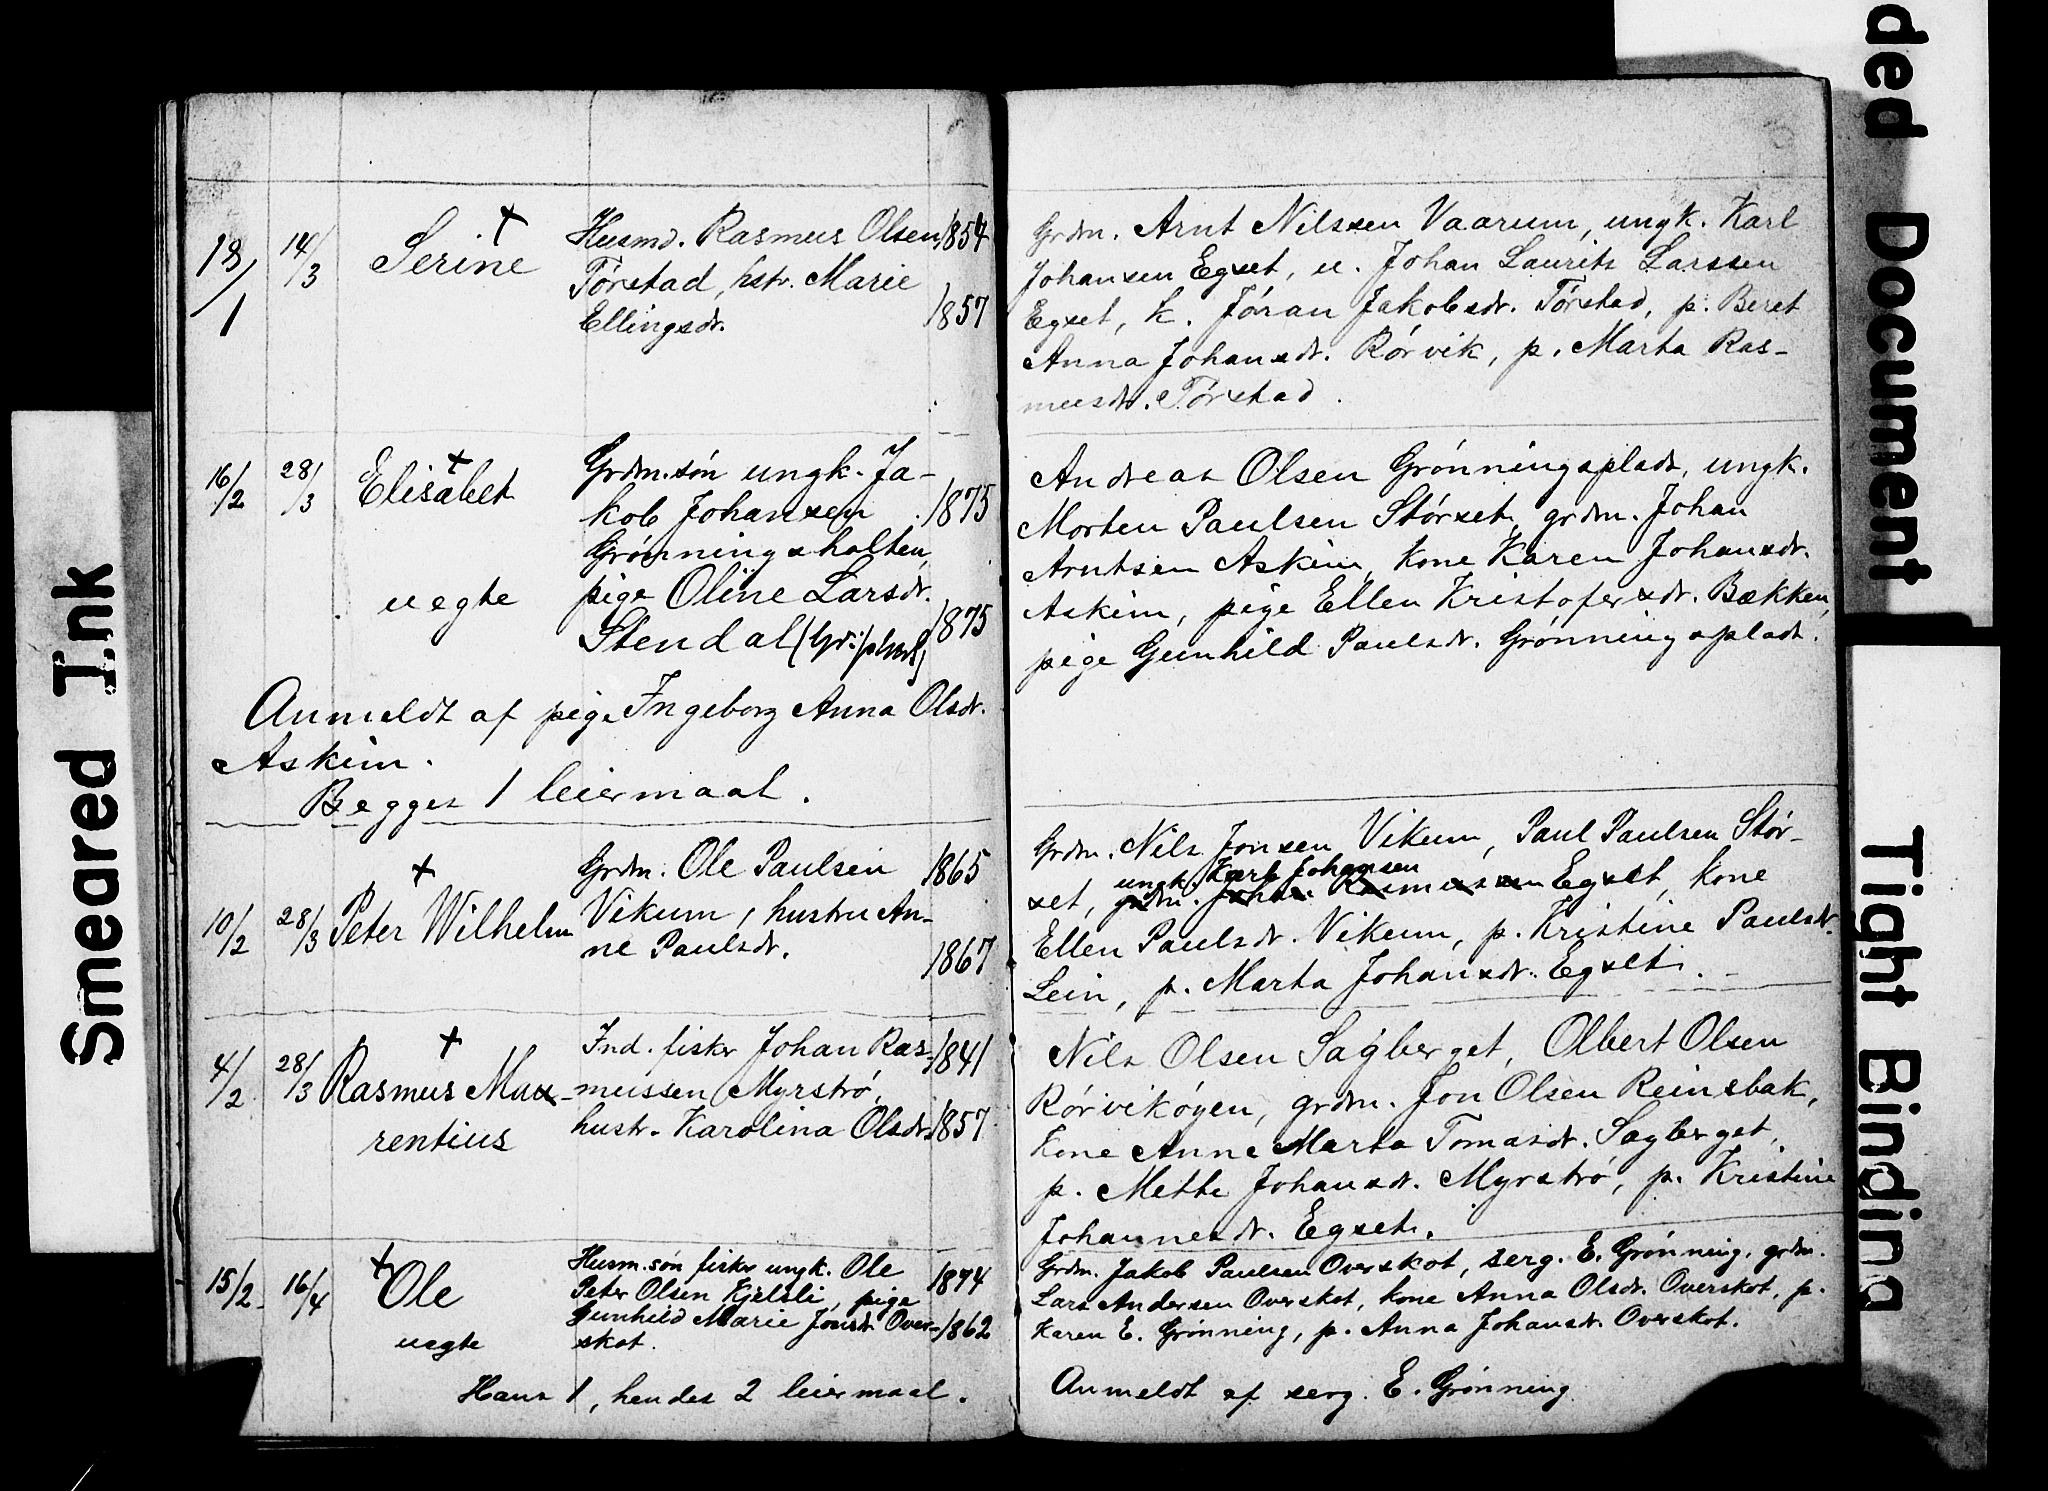 18/1 14/3 Serine Husmd. Rasmus Olsen 1854
Tørstad, hstr. Marie
Ellingsdr. 1857
Grdm. Arnt Nilssen Vaarum, ungk. Karl
Johansen Egset, u. Johan Laurits Larssen
Egset, k. Jóran Jakobsdr. Tórstad, p. Beret
Anna Johansdr. Rórvik, p. Marta Ras-
musdr. Tórstad.
16/2 28/3 Elisabet Grdm.søn ungk. Ja-
kob Johansen 1875
Grónningshalten,
uegte pige Oline Larsdr.
Stendal 1875
Anmeldt af pige Ingeborg Anna Olsdr.
Askim.
Begges 1 leiermaal.
Andreas Olsen Grónningspladt, ungk.
Morten Paulsen Stórset, grdm. Johan
Arntsen Askim, kone Karen Johansdr.
Askim, pige Ellen Kristofersdr. Bækken,
pige Gunhild Paulsdr. Grónningspladt.
10/2 28/3 Peter Wilhelm Grdm. Ole Paulsen 1865
Vikum, hustru An-
ne Paulsdr. 1867
Grdm. Nils Jonsen Vikum, Paul Paulsen Stór-
ungk. Karl Johansen
set, grdm. Johan Rasmussen Egset, kone
Ellen Paulsdr. Vikum, p. Kristine Paulsdr.
Lein, p. Marta Johansdr. Egset.
4/2 28/3 Rasmus Mau- Ind. fisker Johan Ras- 1841
rentius mussen Myrstró,
hustr. Karolina Olsdr. 1857
Nils Olsen Sagberget, Olbert Olsen
Rórvikóyen, grdm. Jon Olsen Reinsbak,
Kone Anne Marta Tomasdr. Sagberget,
p. Mette Johansdr. Myrstró, p. Kristine
Johannesdr. Egset.
15/2 16/4 Ole Husm.søn fisker ungk. Ole 1874
Peter Olsen Kjelsli, pige
Gunhild Marie Jonsdr. Over- 1862
uegte skot.
Hans 1, hendes 2 leiermaal.
Grdm. Jakob Paulsen Overskot, serg. E. Grónning, grdm.
Lars Andersen Overskot, kone Anna Olsdr. Overskot, p.
Karen E. Grónning, p. Anna Johansdr. Overskot.
Anmeldt af serg. E. Grónning
Smeared Ink
ded Document
Tight Binding